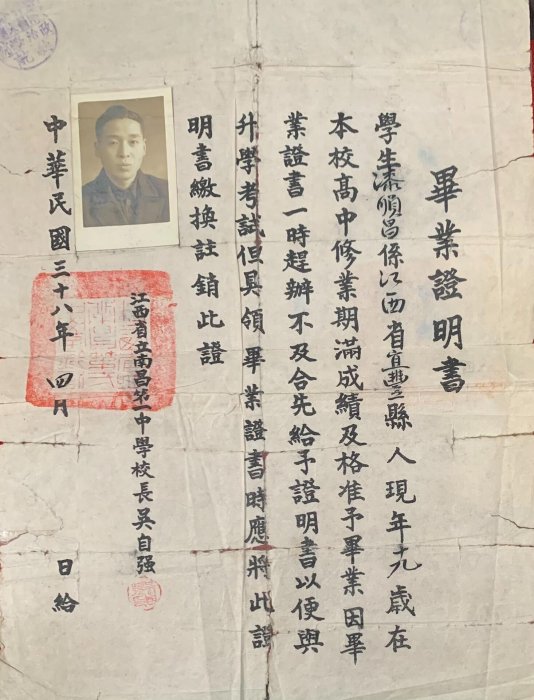 畢業證明書
學生漆順昌係江西省宜豐縣人現年十九歲在
本校高中修業期滿成績及格准予畢業因畢
業證書一時趕辦不及合先給予證明書以便與
升學考試但具領畢業證書時應將此證
明書繳換註銷此證
江西省立南昌第一中學校長吳自强
中華民國三十八年四月 日給